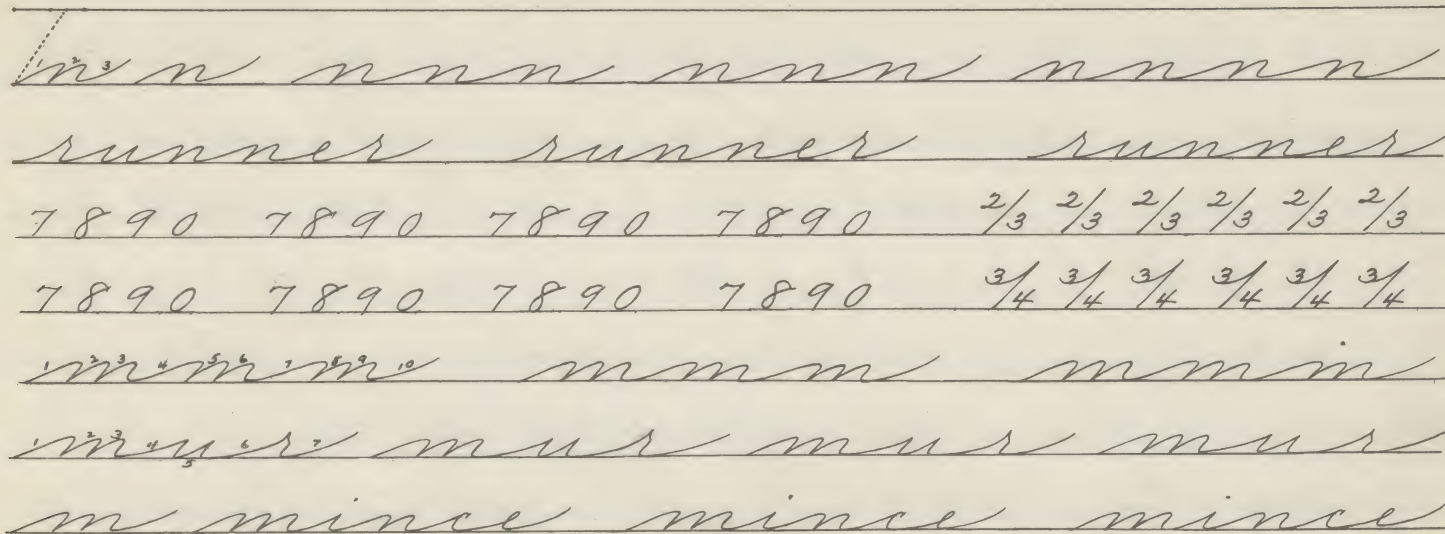 1 2 3 n n n n n n n n n n n n
runner runner runner
7 8 9 0 7 8 9 0 7 8 9 0 7 8 9 0 2/3 2/3 2/3 2/3 2/3 2/3
7 8 9 0 7 8 9 0 7 8 9 0 7 8 9 0 3/4 3/4 3/4 3/4 3/4 3/4
1 2 3 4 5 6 7 8 9 10 m m m m m m m m m
1 2 3 4 5 6 7 mur mur mur mur
m mince mince mince